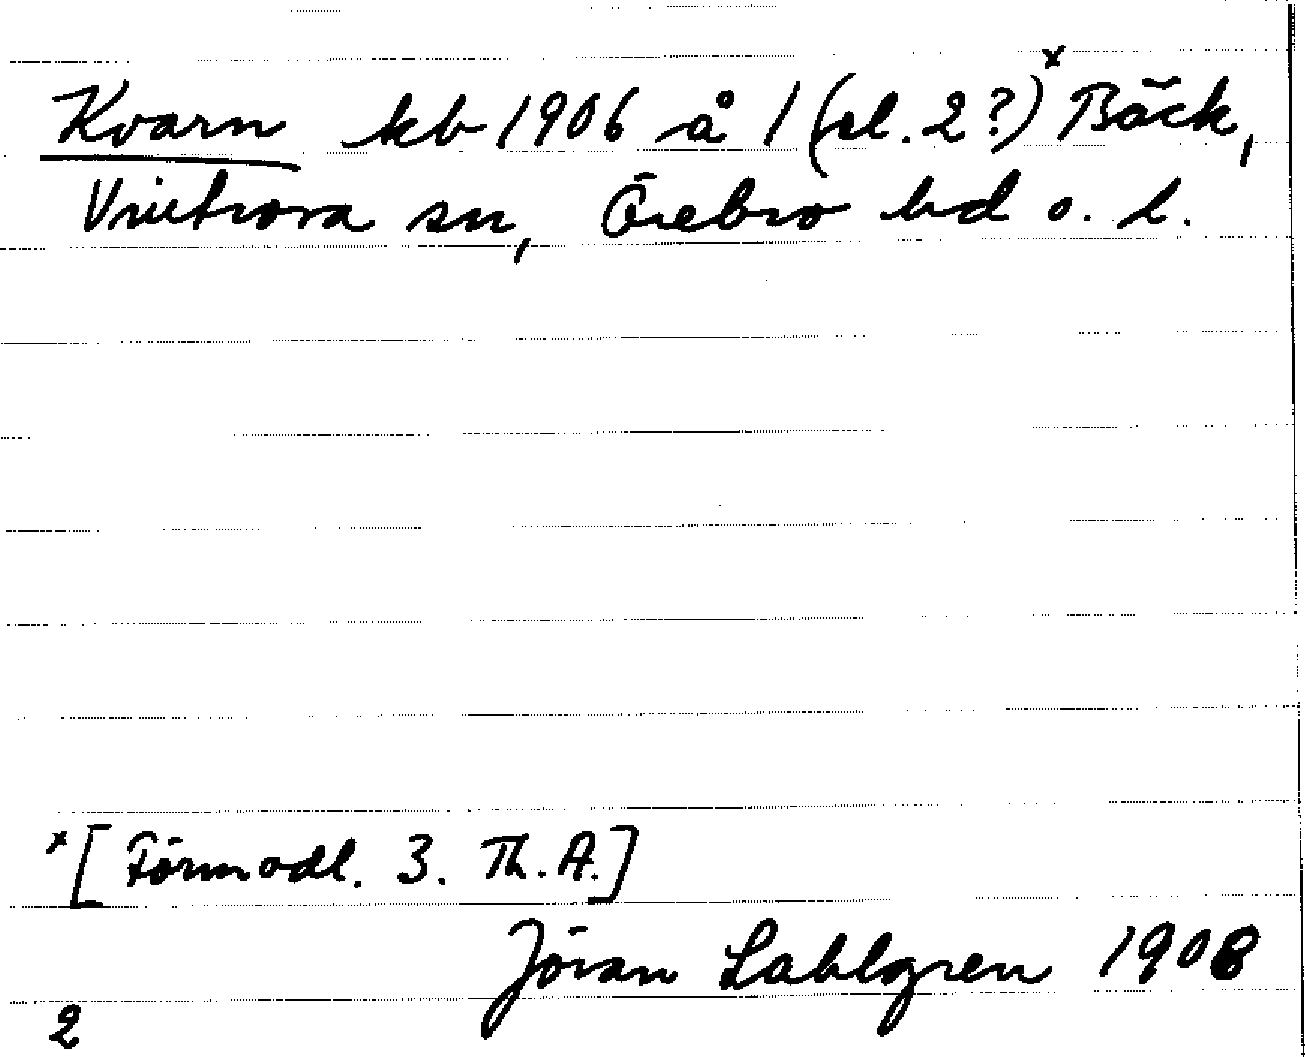 Kvarn kb 1906 å 1 (el. 2?)x Bäck,
Vintrosa sn, Örebro hd o. l.
x [Förmodl. 3. Th. A.]
Jöran Sahlgren 1908
2